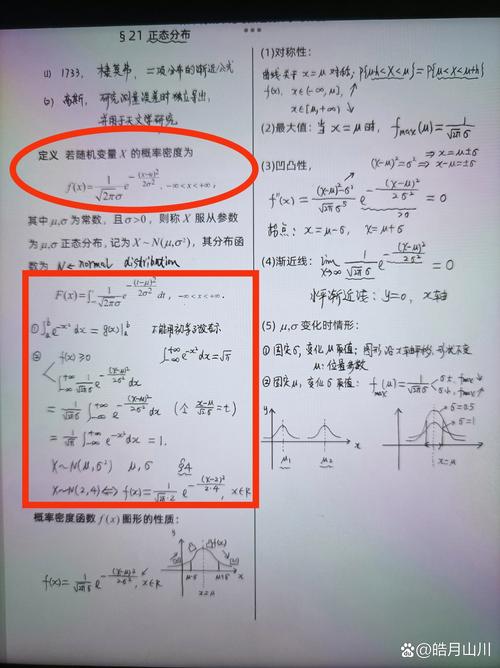 §21 正态分布
(1) 1733, 棣莫弗, 二项分布的渐近公式
(2) 高斯, 研究测量误差时独立导出,
并用于天文学研究
定义 若随机变量 X 的概率密度为
f(x)=1/(√2πσ) e^{-(x-μ)²/2σ²}, -∞<x<+∞,
其中 μ,σ 为常数, 且 σ>0, 则称 X 服从参数
为 μ,σ 正态分布, 记为 X~N(μ,σ²), 其分布函
数为 N ← normal distribution
F(x)=∫ 1/(√2πσ) e^{-(t-μ)²/2σ²} dt, -∞<x<+∞.
① ∫_a^b e^{-x²}dx = g(x)|_a^b 不能用初等函数表示
② f(x)≥0 ∫_{-∞}^{+∞} e^{-x²}dx=√π
∫_{-∞}^{+∞} 1/(√2π σ) e^{-(x-μ)²/2σ²} dx
= 1/(√2π σ) ∫_{-∞}^{+∞} e^{-(x-μ)²/2σ²} dx (令 (x-μ)/(√2 σ) = t)
= 1/√π ∫_{-∞}^{+∞} e^{-x²}dx = 1.
X~N(μ,σ²) μ, σ
X~N(2,4) ⟺ f(x)=1/(√2π·2) e^{-(x-2)²/2·4}, x∈R
概率密度函数 f(x) 图形的性质:
f(x)= 1/(√2π σ) e^{-(x-μ)²/2σ²}, x∈R
f(x)
μ-σ μ+σ x
x=μ
(1)对称性:
曲线关于 x=μ 对称; P{μ-h<X<μ}=P{μ<X<μ+h}
f(x), x∈(-∞,μ], ↗
x∈[μ,+∞) ↘
(2)最大值: 当 x=μ 时, f_max(μ)=1/(√2π σ)
(3)凹凸性, (x-μ)²=σ² ⇒ x-μ=±σ
⇒ x=μ±σ
f''(x)= ((x-μ)²-σ²)/(√2π σ⁵) e^{-(x-μ)²/2σ²} = 0
>0
拐点: x=μ-σ, x=μ+σ
(4)渐近线: lim_{x→∞} 1/(√2π σ) e^{-(x-μ)²/2σ²} = 0
水平渐近线: y=0, x轴
(5) μ,σ 变化时情形:
① 固定σ, 变化μ取值: 图形沿x轴平移, 形状不变
μ: 位置参数
② 固定μ, 变化σ取值: f_max(μ)=1/(√2π σ) σ↑, f_max↓
σ↓, f_max↑
y
μ₁ μ₂ x
y σ=0.5
σ=1
x=μ
@皓月山川